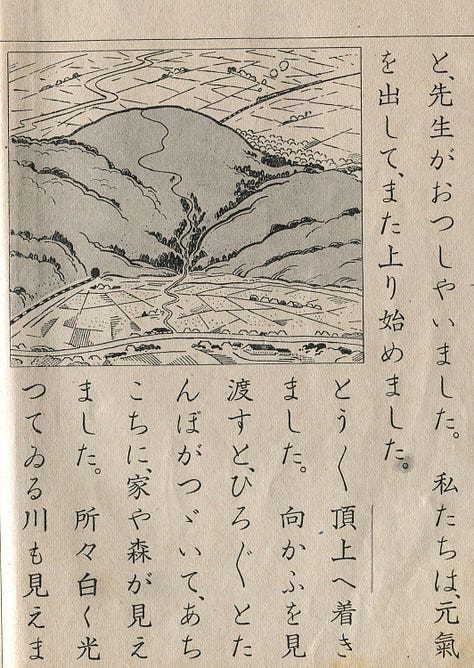 と、先生がおつしやいました。　私たちは、元氣
を出して、また上り始めました。
とう〳〵頂上へ着き
ました。　向かふを見
渡すと、ひろ〴〵とた
んぼがつゞいて、あち
こちに、家や森が見え
ました。　所々白く光
つてゐる川も見えま